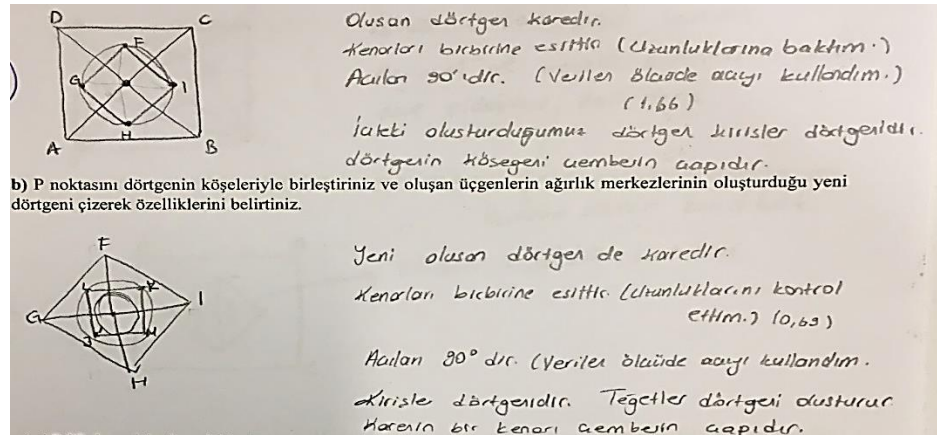 D C
F
G I
H
A B
Oluşan dörtgen karedir.
Kenarları birbirine eşittir (Uzunluklarına baktım.)
Açıları 90'ıdır. (Verilen ölçüde açıyı kullandım.)
(1,66)
İçteki oluşturduğumuz dörtgen kirişler dörtgenidir.
dörtgenin köşegeni çemberin çapıdır.
b) P noktasını dörtgenin köşeleriyle birleştiriniz ve oluşan üçgenlerin ağırlık merkezlerinin oluşturduğu yeni
dörtgeni çizerek özelliklerini belirtiniz.
F
L K
G I
J M
H
Yeni oluşan dörtgen de karedir.
Kenarları birbirine eşittir. (Uzunluklarını kontrol
ettim.) (0,69)
Açıları 90° dir. (Verilen ölçüde açıyı kullandım.
Kirişler dörtgenidir. Teğetler dörtgeni oluşturur
Karenin bir kenarı çemberin çapıdır.